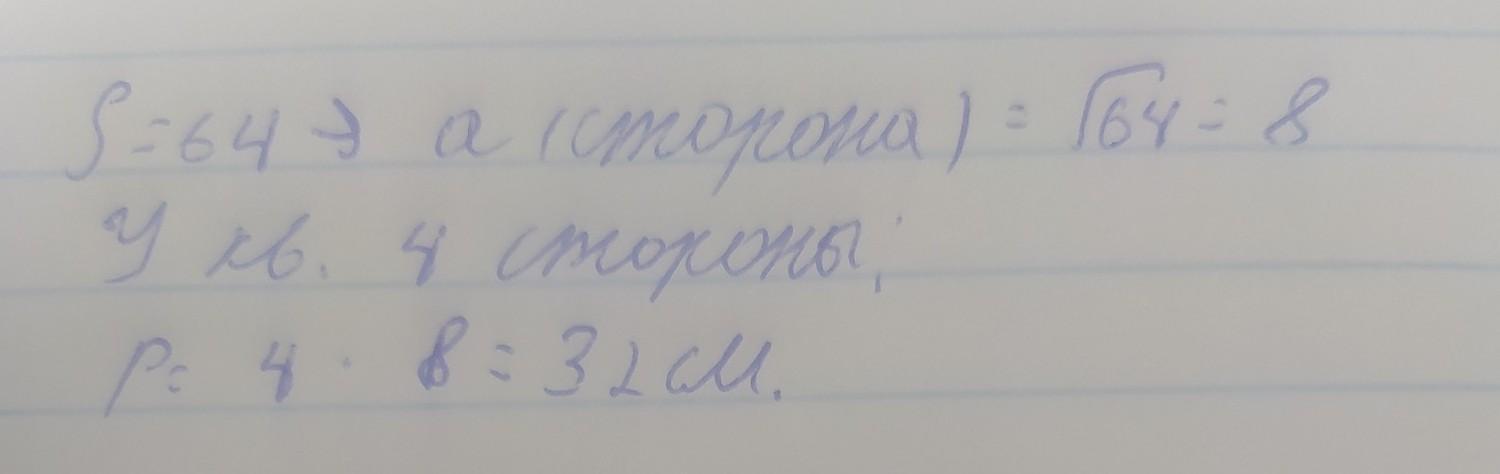 S=64 → a (сторона) = √64 = 8
У кв. 4 стороны;
P= 4 · 8 = 32см.